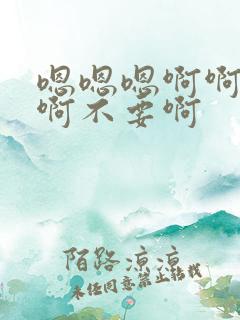 嗯嗯嗯啊啊
啊不要啊
陌路凉凉
未经同意禁止转载